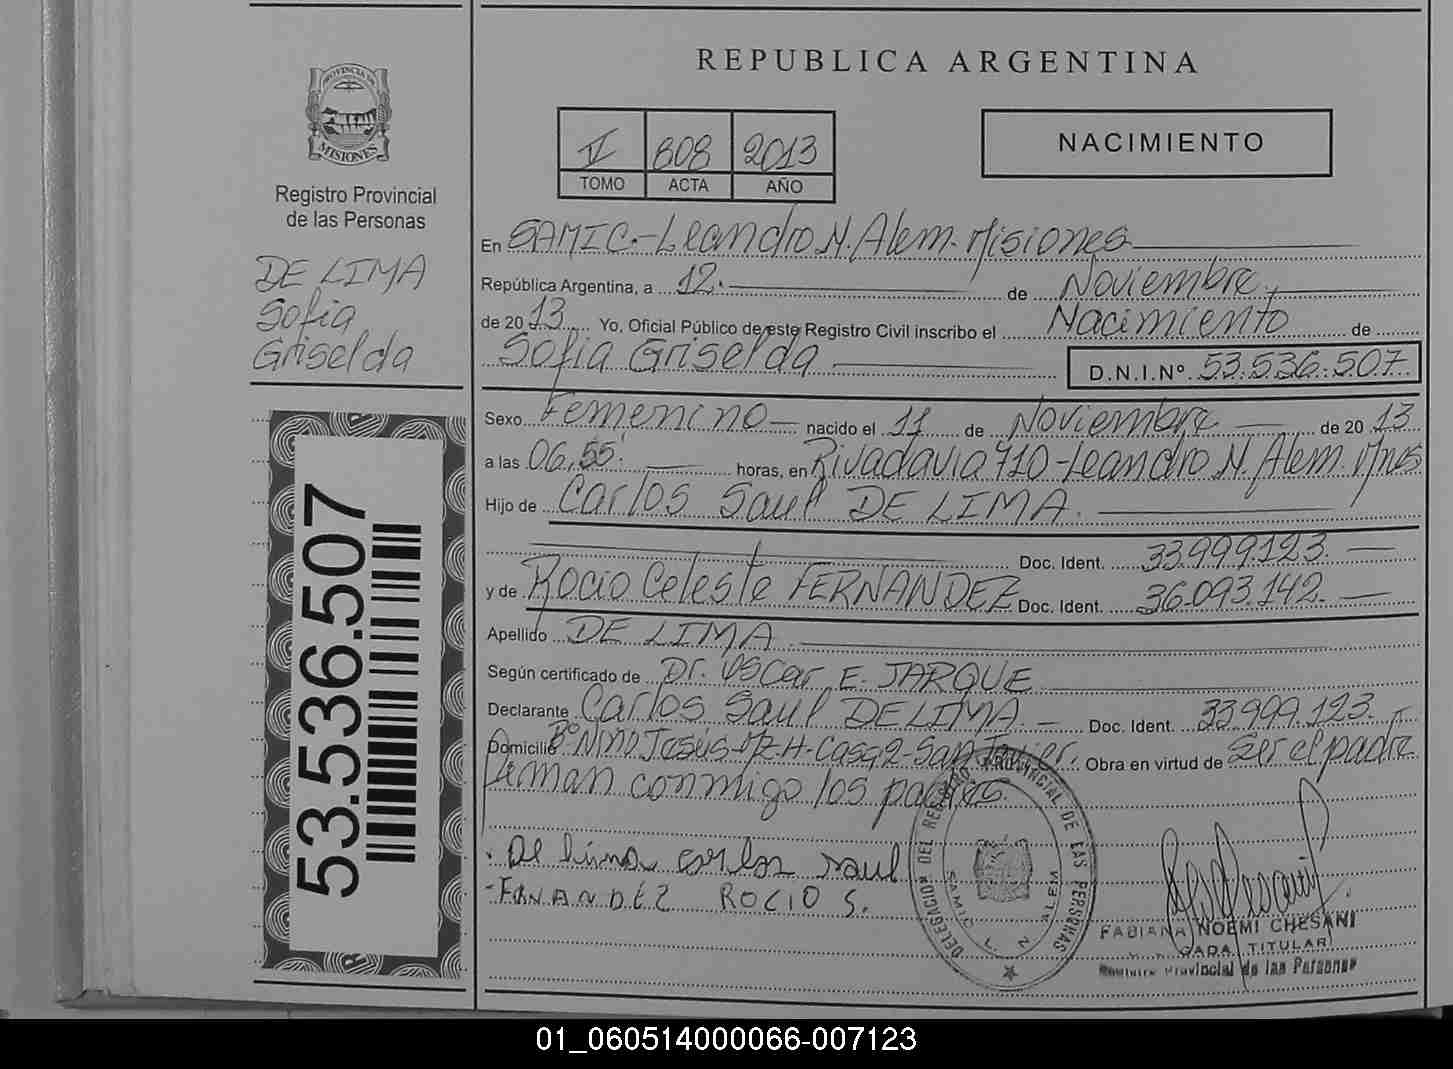 REPUBLICA ARGENTINA
PROVINCIA DE
MISIONES
Registro Provincial
de las Personas
DE LIMA
Sofia
Griselda
53.536.507
II 608 2013
TOMO ACTA AÑO
NACIMIENTO
En SAMIC.-Leandro N. Alem-Misiones
República Argentina, a 12.- de Noviembre
de 2013 Yo, Oficial Público de este Registro Civil inscribo el Nacimiento de
Sofia Griselda D.N.I.Nº 53.536.507
Sexo Femenino nacido el 11 de Noviembre de 2013
a las 06,55' horas, en Rivadavia 710-Leandro N. Alem. Mnes
Hijo de Carlos Saul DE LIMA.
Doc. Ident. 33.999.123.
y de Rocio Celeste FERNANDEZ Doc. Ident. 36.093.142.
Apellido DE LIMA.
Según certificado de Dr. Oscar E. JARQUE
Declarante Carlos Saul DE LIMA.- Doc. Ident. 33.999.123.
Domicilio Bº Niño Jesús-Mz-H-Casa 2-San Javier. Obra en virtud de Ser el padre
Firman conmigo los padres.
De lima carlos saul
-FRNANDÉZ ROCIO S.
DELEGACION DEL REGISTRO PROVINCIAL DE LAS PERSONAS
SAMIC L. N. ALEM
FABIANA NOEMI CHESANI
TITULAR
Registro Provincial de las Personas
01_060514000066-007123